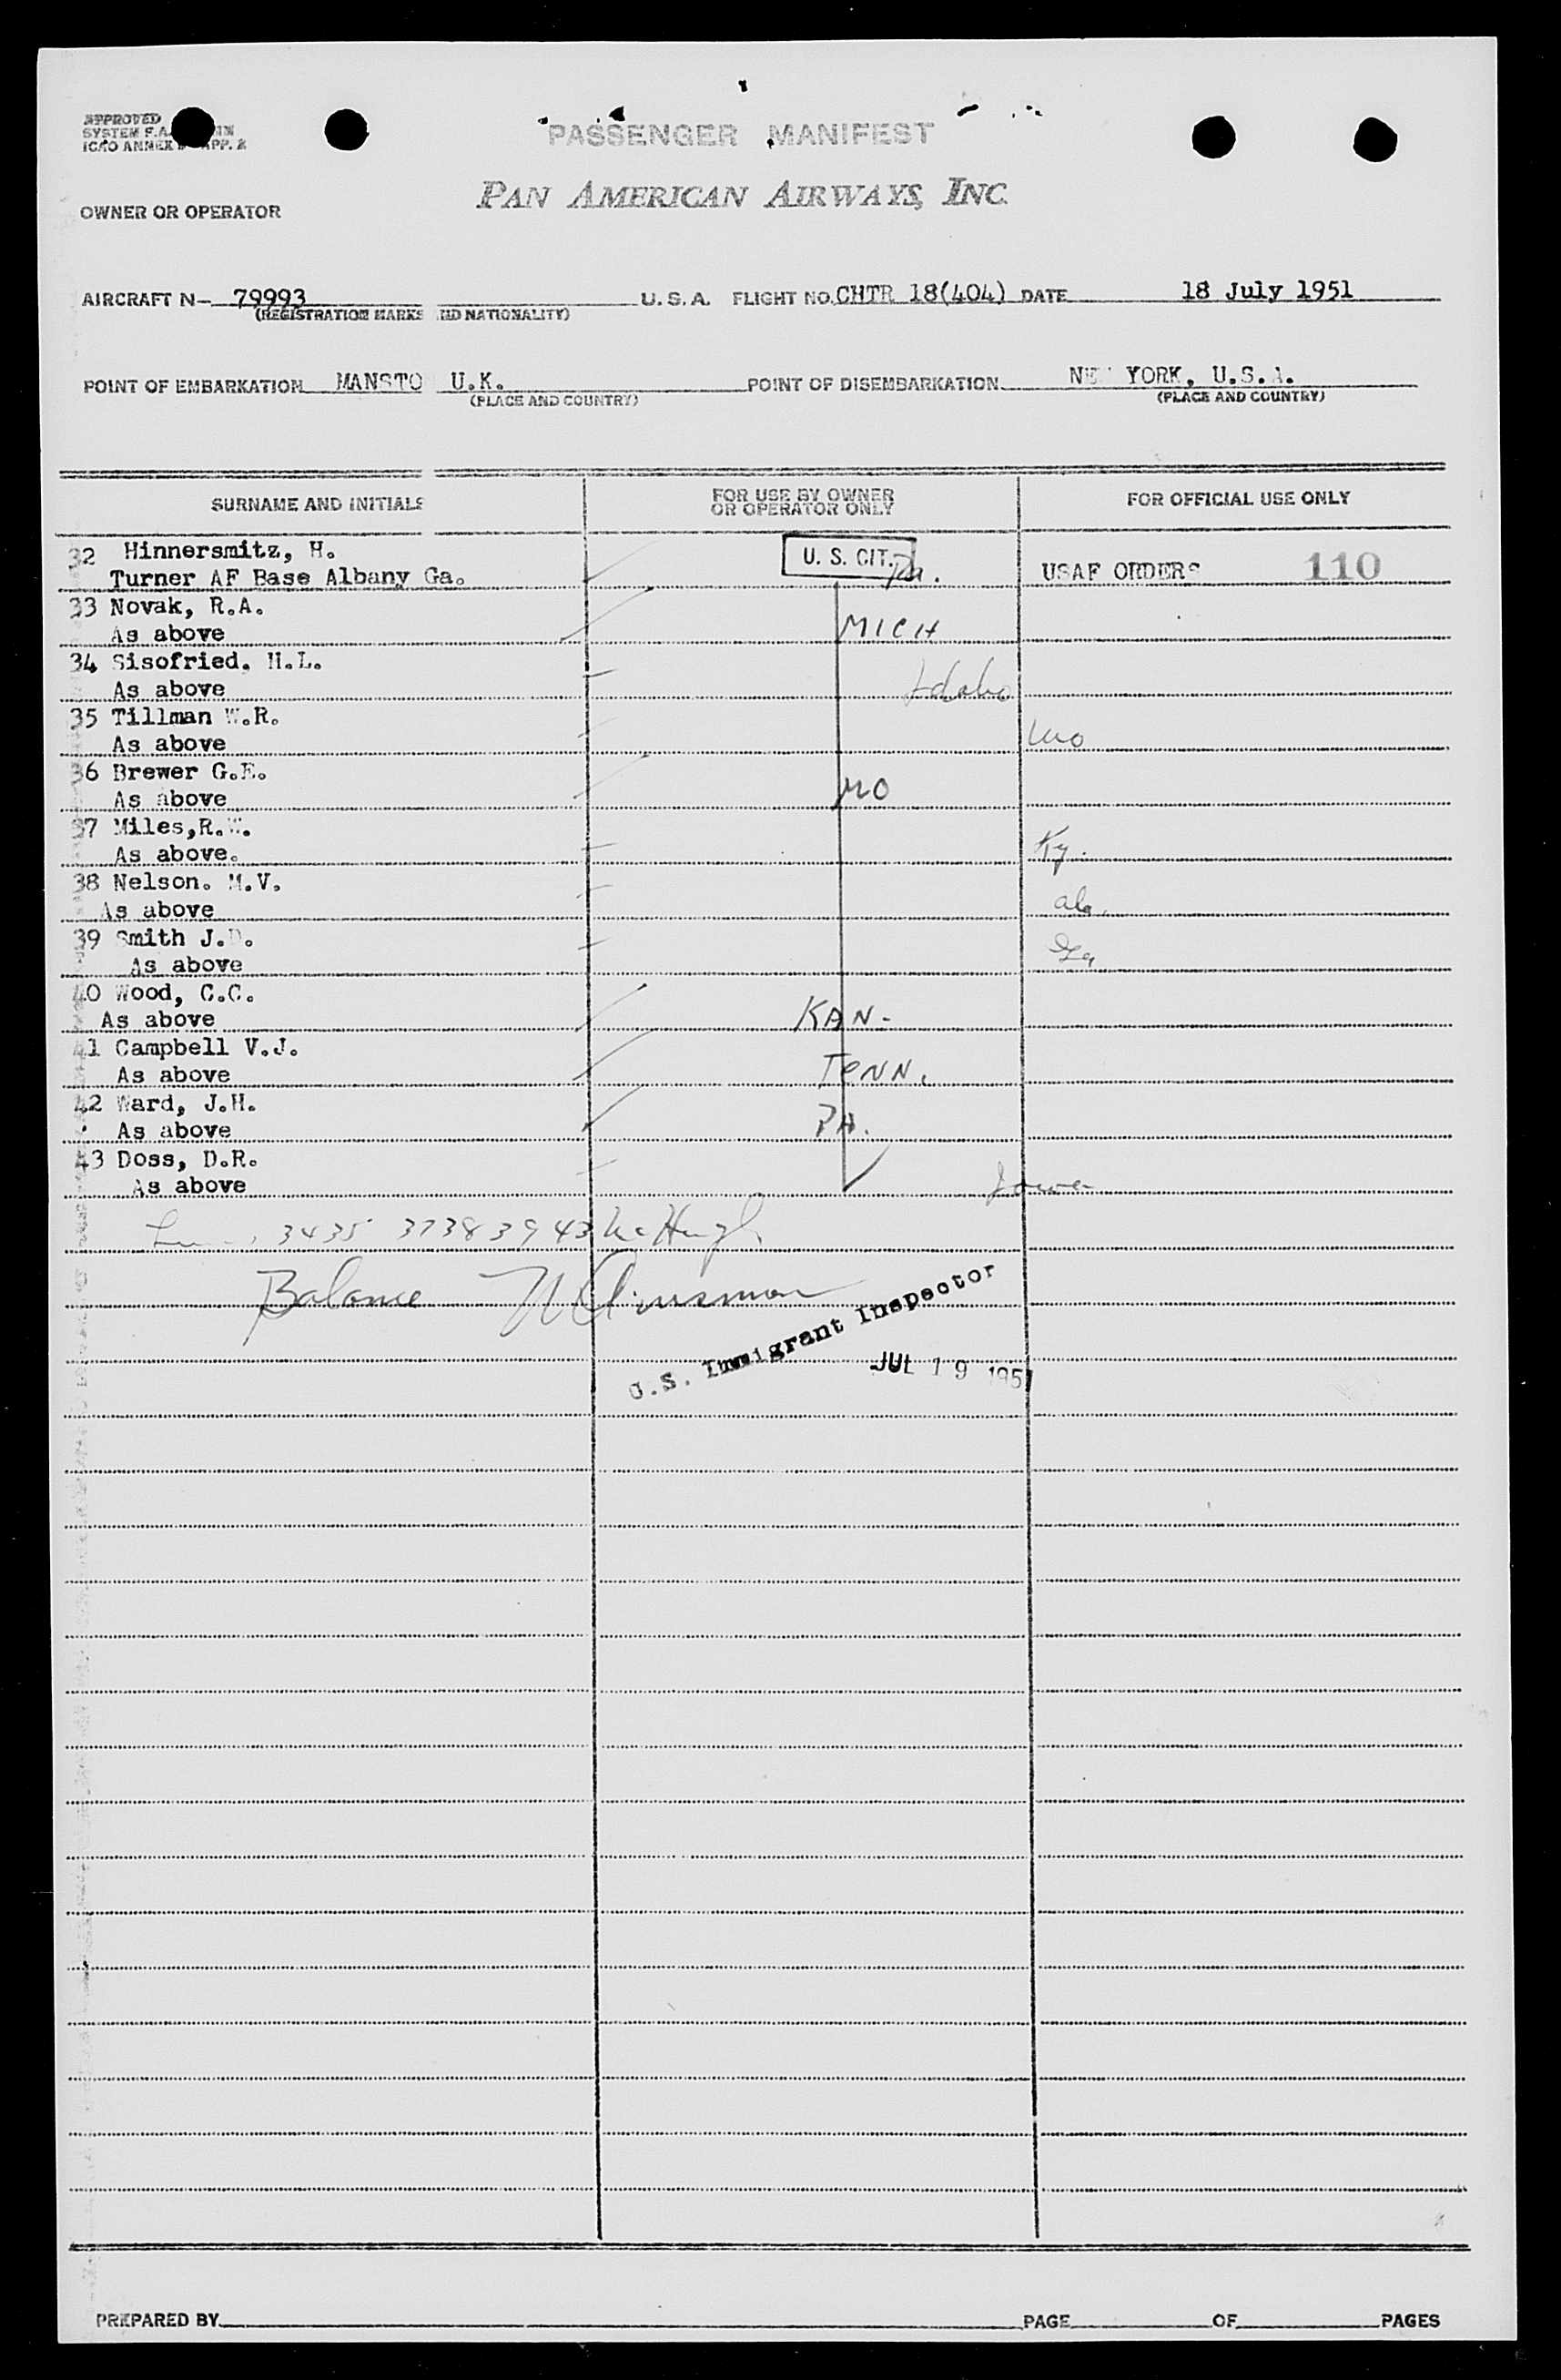 APPROVED
SYSTEM F.A.
ICAO ANNEX APP. 2
PASSENGER MANIFEST
PAN AMERICAN AIRWAYS, INC.
OWNER OR OPERATOR
AIRCRAFT N- 79993 U.S.A. FLIGHT NO. CHTR 18(404) DATE 18 July 1951
(REGISTRATION MARKS AND NATIONALITY)
POINT OF EMBARKATION MANSTO U.K. POINT OF DISEMBARKATION NEW YORK, U.S.A.
(PLACE AND COUNTRY) (PLACE AND COUNTRY)
SURNAME AND INITIALS FOR USE BY OWNER OR OPERATOR ONLY FOR OFFICIAL USE ONLY
32 Hinnersmitz, H. U. S. CIT. Pa.
Turner AF Base Albany Ga. USAF ORDERS 110
33 Novak, R.A.
As above MICH
34 Sisofried. H.L.
As above Idaho
35 Tillman W.R.
As above Mo
36 Brewer G.E.
As above MO
37 Miles,R.W.
As above. Ky.
38 Nelson. M.V.
As above ala.
39 Smith J.D.
As above Ga
40 Wood, C.C.
As above KAN-
41 Campbell V.J.
As above TENN.
42 Ward, J.H.
As above PA.
43 Doss, D.R.
As above Iowa
3435 37383943 McHugh
Balance
U.S. Immigrant Inspector
JUL 19 1951
PREPARED BY PAGE OF PAGES